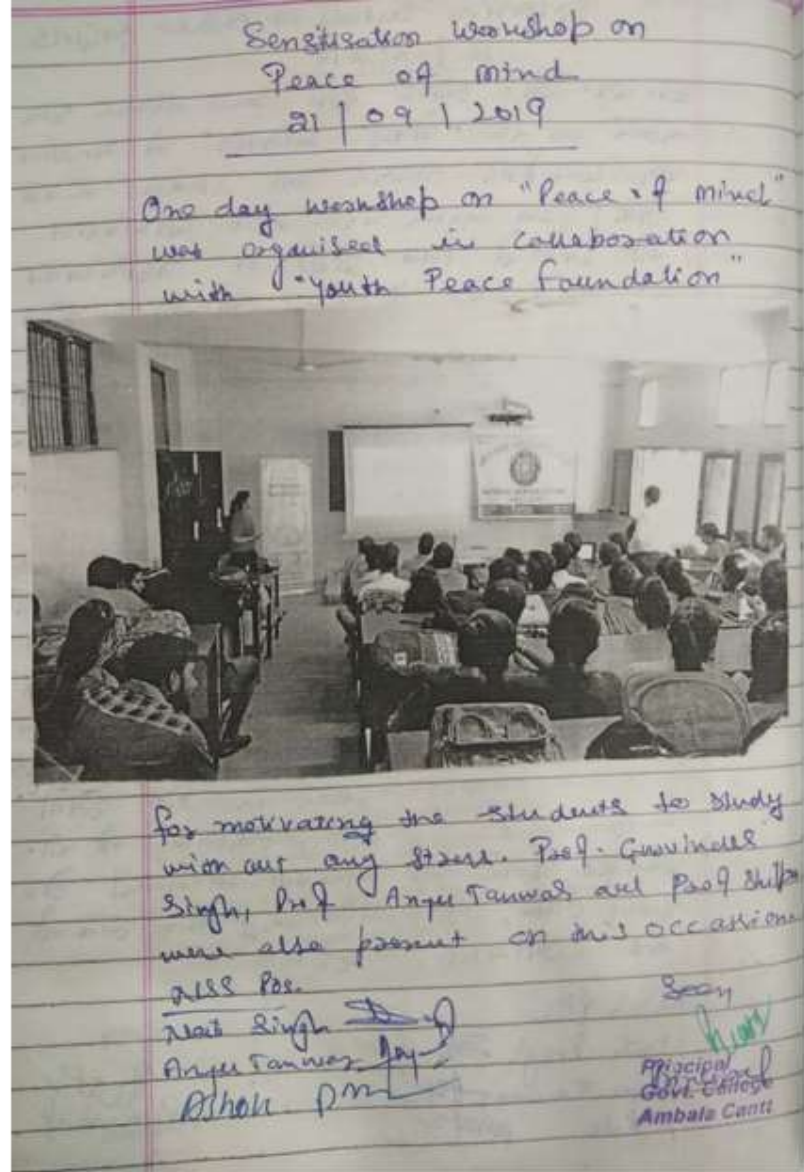 Sensitisation Workshop on
Peace of Mind
21 | 09 | 2019
One day workshop on "Peace of Mind"
was organised in collaboration
with "Youth Peace Foundation"
for motivating the students to study
without any stress. Prof. Gurvinder
Singh, Prof Anju Tanwar and Prof Shilpa
were also present on this occasion.
NSS POs.
Singh
Anju Tanwar
Ashok
Seen
Principal
Govt. College
Ambala Cantt